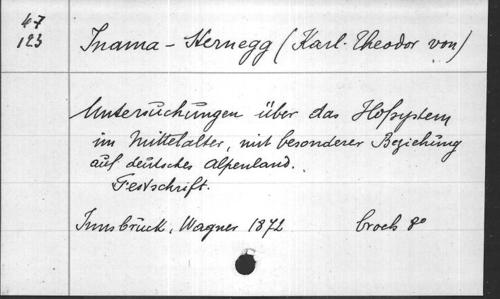 47
123
Inama-Sternegg (Karl-Theodor von)
Untersuchungen über das Hofsystem
im Mittelalter, mit besonderer Beziehung
auf deutsches Alpenland.
Festschrift.
Innsbruck, Wagner 1872 broch 8°